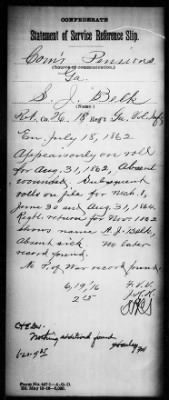 CONFEDERATE
Statement of Service Reference Slip.
Com'r Pensions
(Source of communication.)
Ga.
S. J. Belk
(Name.)
Pvt. Co. G. 18 Regt Ga. Vol. Inf.
En. July 18, 1862
Appears only on roll
for Aug. 31, 1862, Absent
wounded. Subsequent
rolls on file for
June 30 and Aug. 31, 1864.
Regtl. return for Nov. 1862
shows name H. J. Belk,
Absent sick no later
record found.
No P. of War record found.
6/19/16
Nothing additional found
Form No. 427.1—A. G. O.